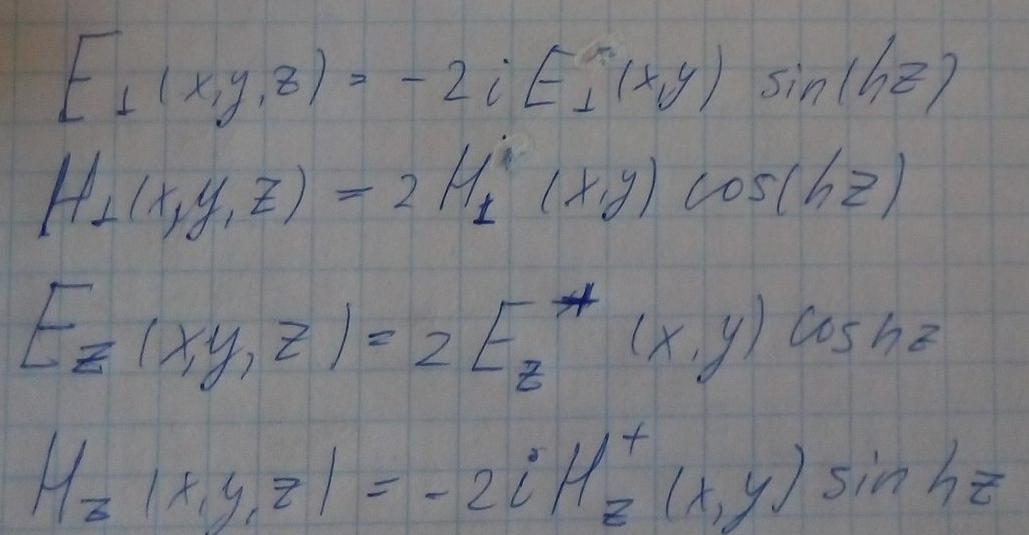 E⊥(x,y,z) = -2iE⊥(x,y) sin(hz)
H⊥(x,y,z) = 2H⊥(x,y) cos(hz)
E_z(x,y,z) = 2E_z^+(x,y) cos hz
H_z(x,y,z) = -2iH_z^+(x,y) sin hz